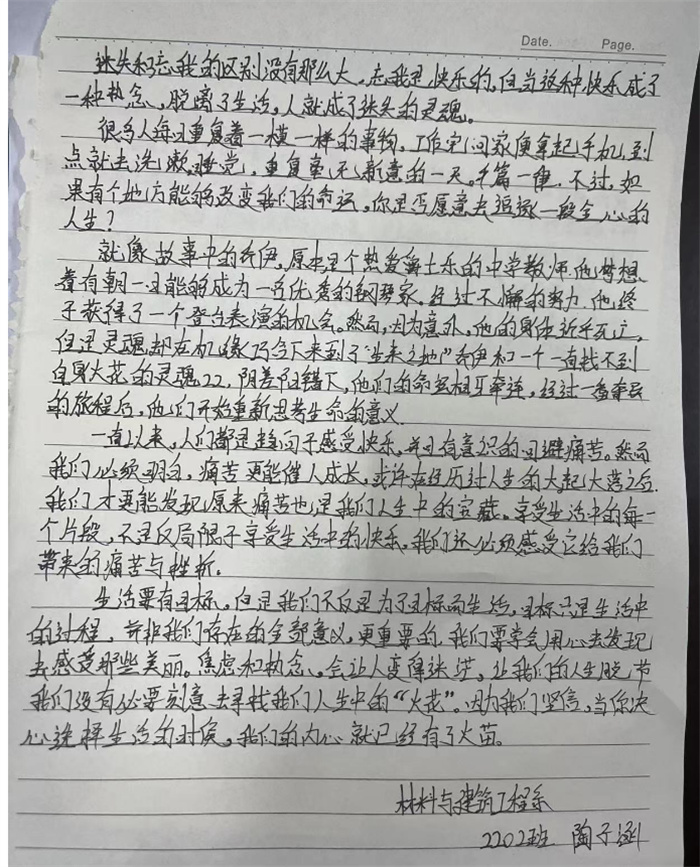 Date.
Page.
迷失和忘我的区别没有那么大，忘我是快乐的，但当这种快乐成了
一种执念，脱离了生活，人就成了迷失的灵魂。
很多人每日重复着一模一样的事物，工作完回家便拿起手机，到
点就去洗漱睡觉，重复毫无新意的一天。千篇一律，不过，如
果有个地方能够改变我们的命运，你是否愿意去追逐一段全心的
人生？
就像故事中的乔伊，原本是个热爱爵士乐的中学教师，他梦想
着有朝一日能够成为一名优秀的钢琴家。经过不懈的努力，他终
于获得了一个登台表演的机会。然而，因为意外，他的身体近乎死亡，
但是灵魂却在机缘巧合下来到了“生来之地”乔伊和一个一直找不到
自身火花的灵魂22，阴差阳错下，他们的命运相互牵连，经过一番奇异
的旅程后，他们开始重新思考生命的意义.
一直以来，人们都是趋向于感受快乐，并且有意识的回避痛苦。然而
我们必须明白，痛苦更能催人成长，或许在经历过人生的大起大落之后.
我们才更能发现原来痛苦也是我们人生中的宝藏。享受生活中的每一
个片段，不是仅局限于享受生活中的快乐，我们还必须感受它给我们
带来的痛苦与挫折.
生活要有目标，但是我们不仅是为了目标而生活，目标只是生活中
的过程，并非我们存在的全部意义，更重要的，我们要学会用心去发现
去感受那些美丽。焦虑和执念，会让人变得迷茫，让我们的人生脱节
我们没有必要刻意去寻找我们人生中的“火花”。因为我们坚信，当你决
心选择生活的时候，我们的内心就已经有了火苗。
材料与建筑工程系
2202班 陶子涵